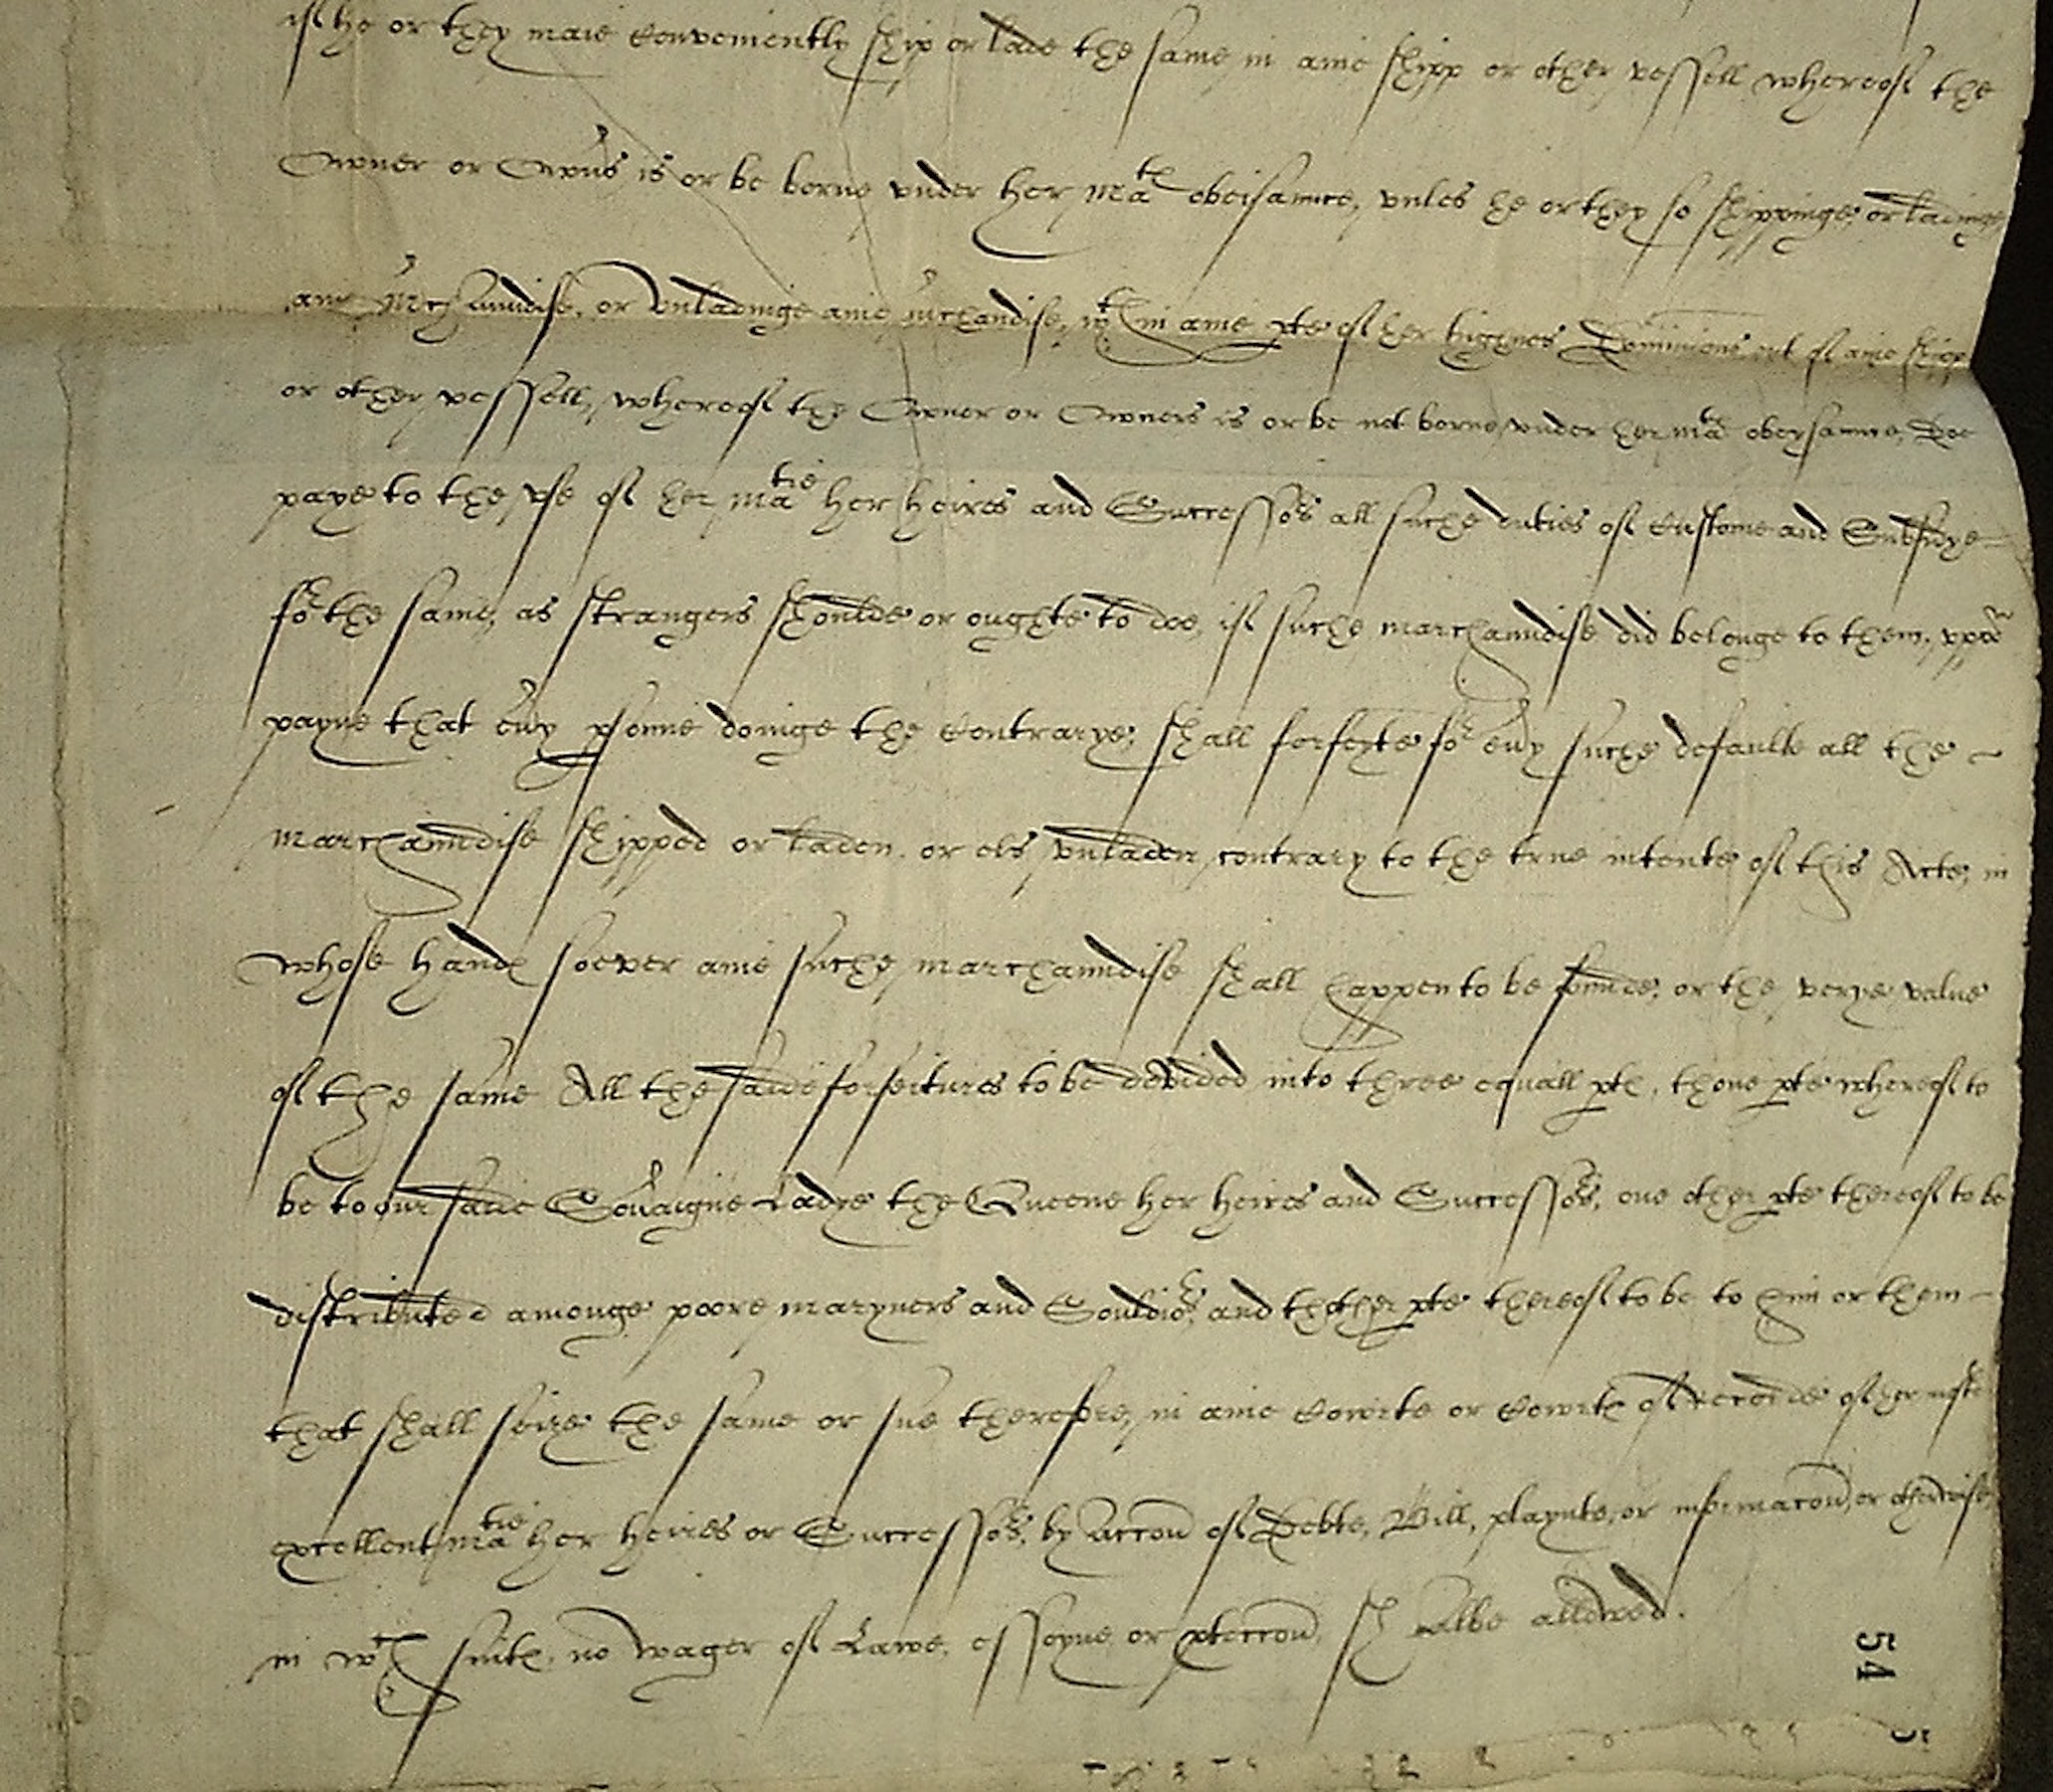 if he or they maie conveniently ship or lade the same in anie shipp or other vessell whereof the
Owner or Own's is or be borne vnder her Ma:te obeisaunce, vnles he or they so shippinge, or ladinge
anie m'chaundise, or vnladinge anie m'chandise, wth in anie pte of her highnes Dominions out of anie shipp
or other vessell, whereof the Owner or Owners is or be not borne vnder her Mate obeysaunce, Doe
paye to the vse of her Matie her heires and Successors all suche duties of Custome and Subsidye
for the same, as strangers shoulde or oughte to doe, if suche marchaundise did belonge to them, vppō
payne that eu'y psonne doinge the Contrarye, shall forfeyte for eu'y suche defaulte all the
marchaundise shipped or laden, or els vnladen contrary to the true intente of this Acte, in
whose hande soever anie suche marchaundise shall happen to be founde, or the verye value
of the same All the saide forfeitures to be devided into three equall pte, thone pte whereof to
be to our saide Sou'aigne Ladye the Queene her heires and Successors, one other pte thereof to be
distributed amonge poore maryners and Souldiors, and thother pte thereof to be to him or them
that shall seize the same or sue therefore, in anie Cowrte or Cowrte of Recorde of her moste
excellent Matie her heires or Successors, by Accon of Debte, Bill, playnte, or informacon, or otherwise,
in wch suite, no wager of Lawe, essoyne, or pteccon, shalbe allowed.
54